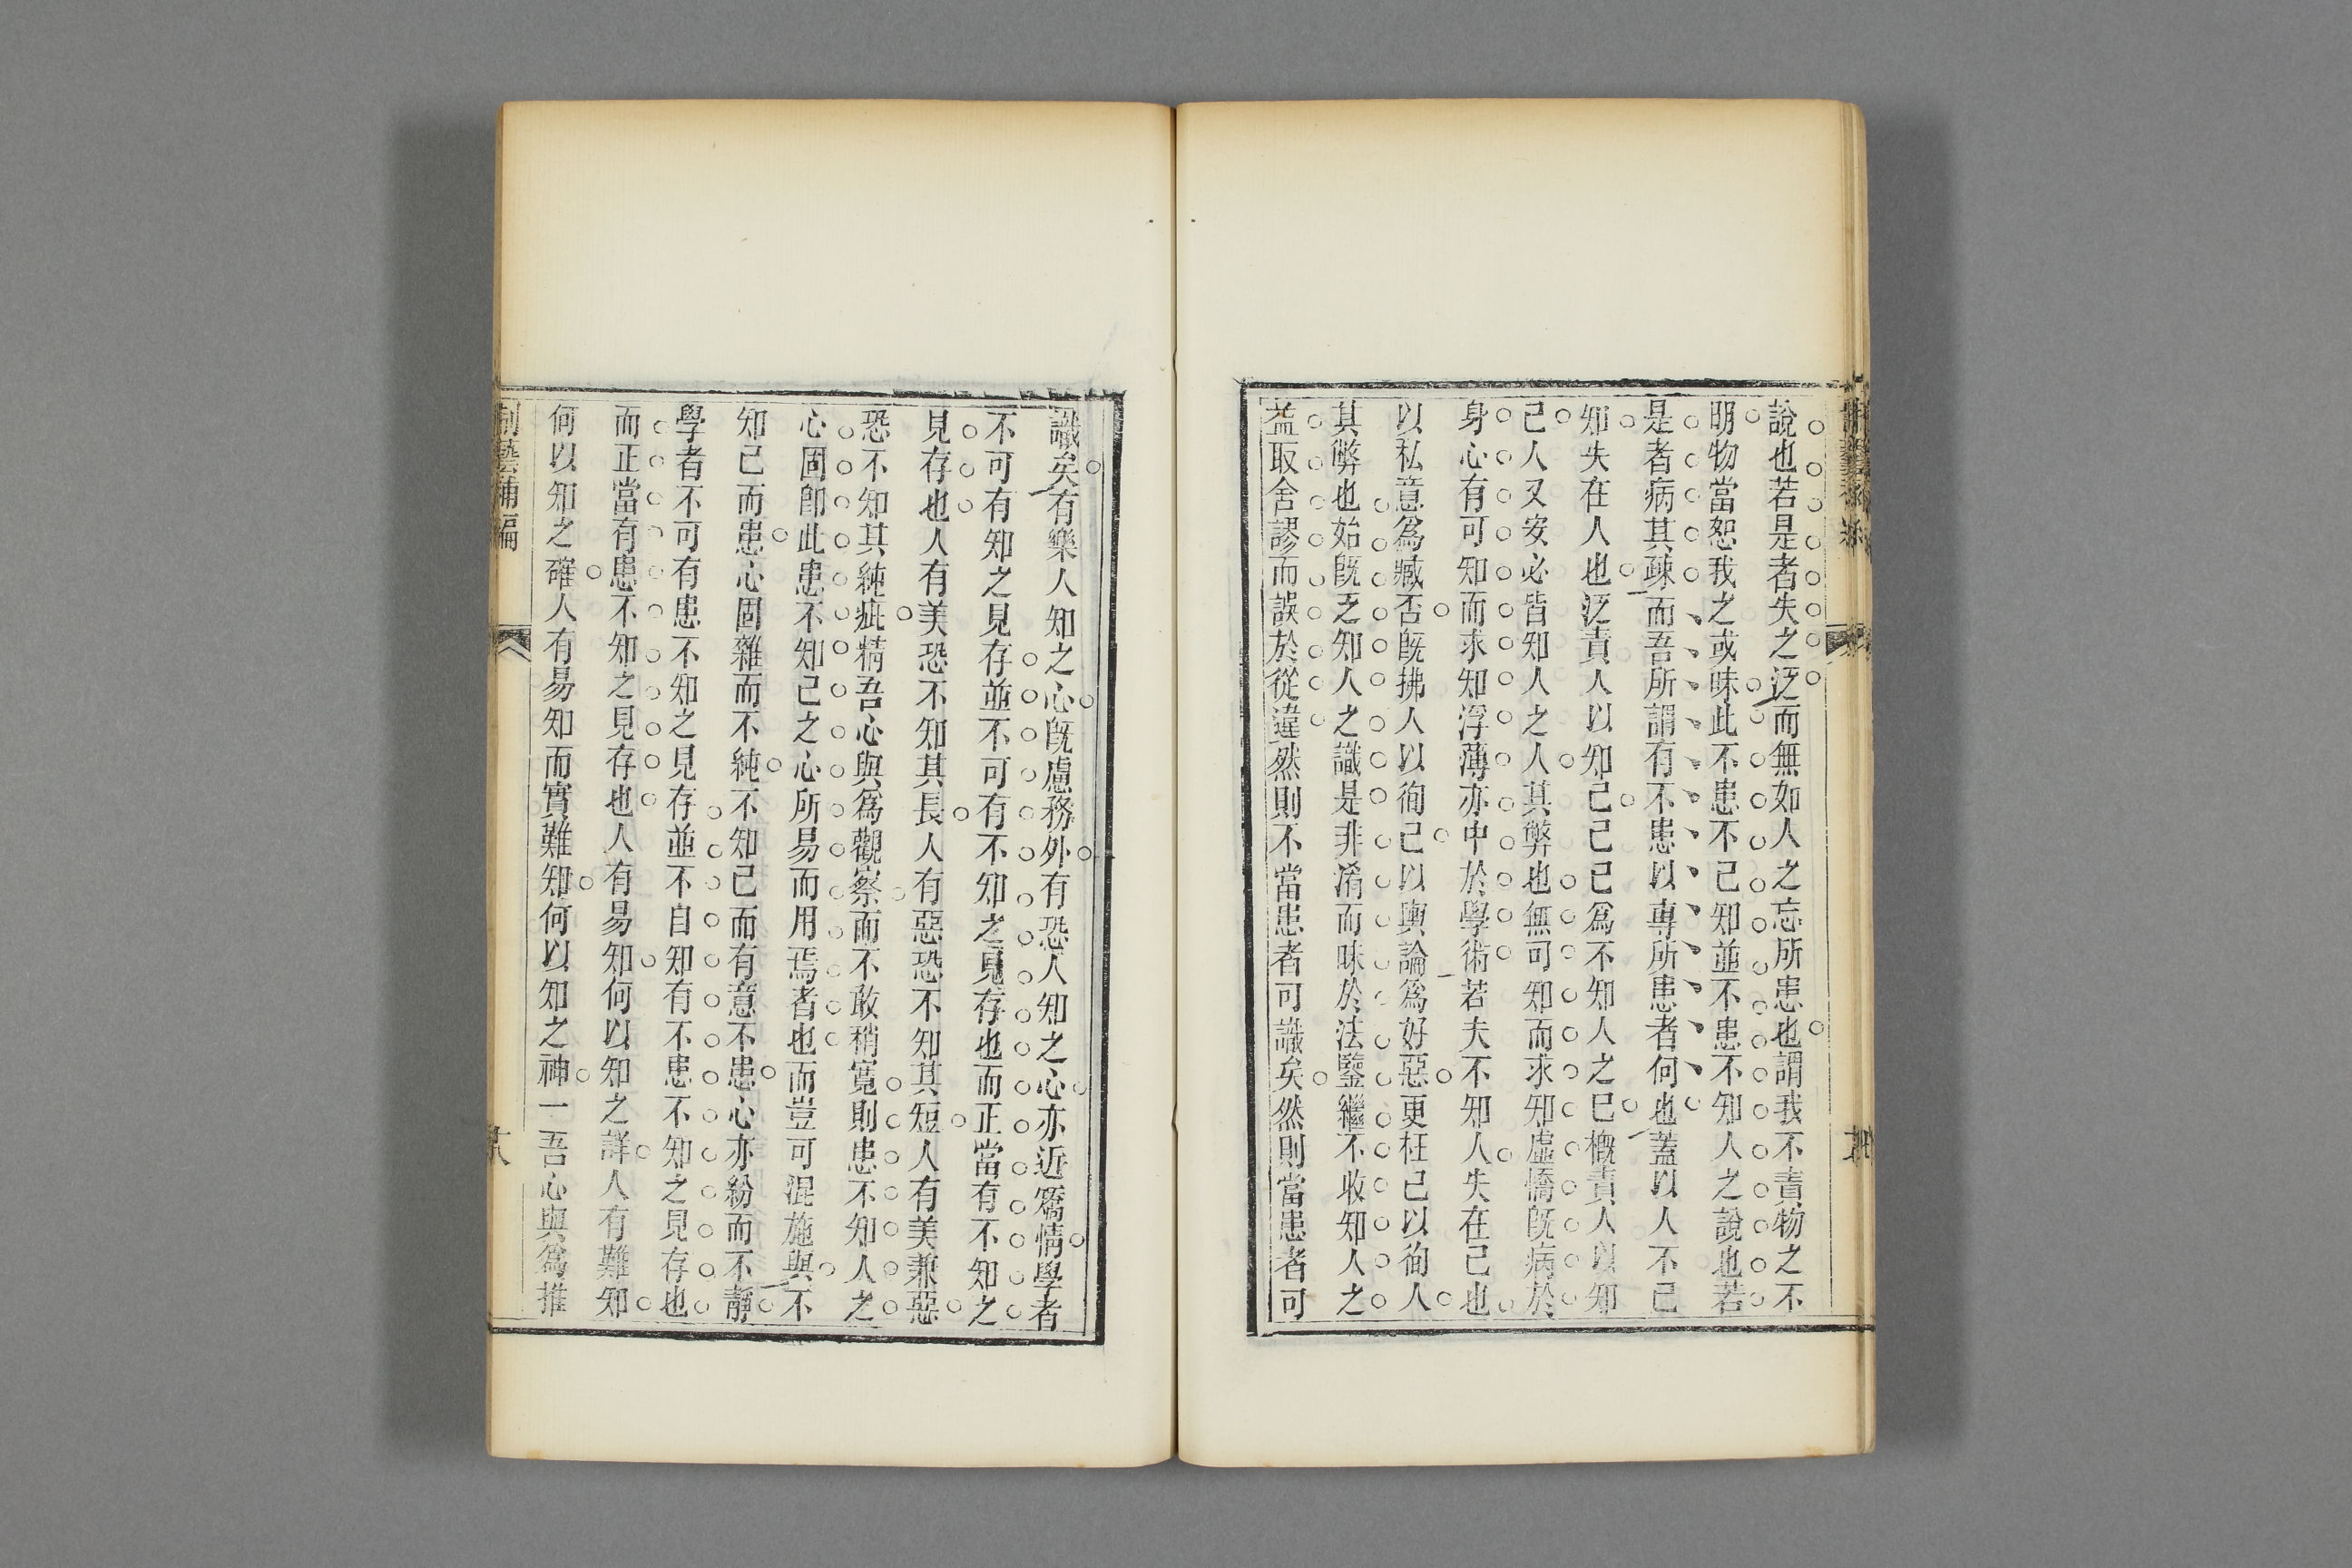 說也若是者失之泛而無如人之忘所患也謂我不責物之不
明物當恕我之或昧此不患不己知並不患不知人之說也若
是者病其疎而吾所謂有不患以專所患者何也蓋以人不己
知失在人也泛責人以知己己已為不知人之已概責人以知
己人又安必皆知人之人其弊也無可知而求知虛憍旣病於
身心有可知而求知浮薄亦中於學術若夫不知人失在己也
以私意為臧否旣拂人以徇己以輿論為好惡更枉己以徇人
其弊也始旣乏知人之識是非淆而昧於法鑒繼不收知人之
益取舍謬而誤於從違然則不當患者可識矣然則當患者可
識矣有樂人知之心旣慮務外有恐人知之心亦近矯情學者
不可有知之見存並不可有不知之見存也而正當有不知之
見存也人有美恐不知其長人有惡恐不知其短人有美兼惡
恐不知其純疵精吾心與為觀察而不敢稍寬則患不知人之
心固卽此患不知己之心所易而用焉者也而豈可混施與不
知己而患心固雜而不純不知己而有意不患心亦紛而不靜
學者不可有患不知之見存並不自知有不患不知之見存也
而正當有患不知之見存也人有易知何以知之詳人有難知
何以知之確人有易知而實難知何以知之神一吾心與為推
制藝補編